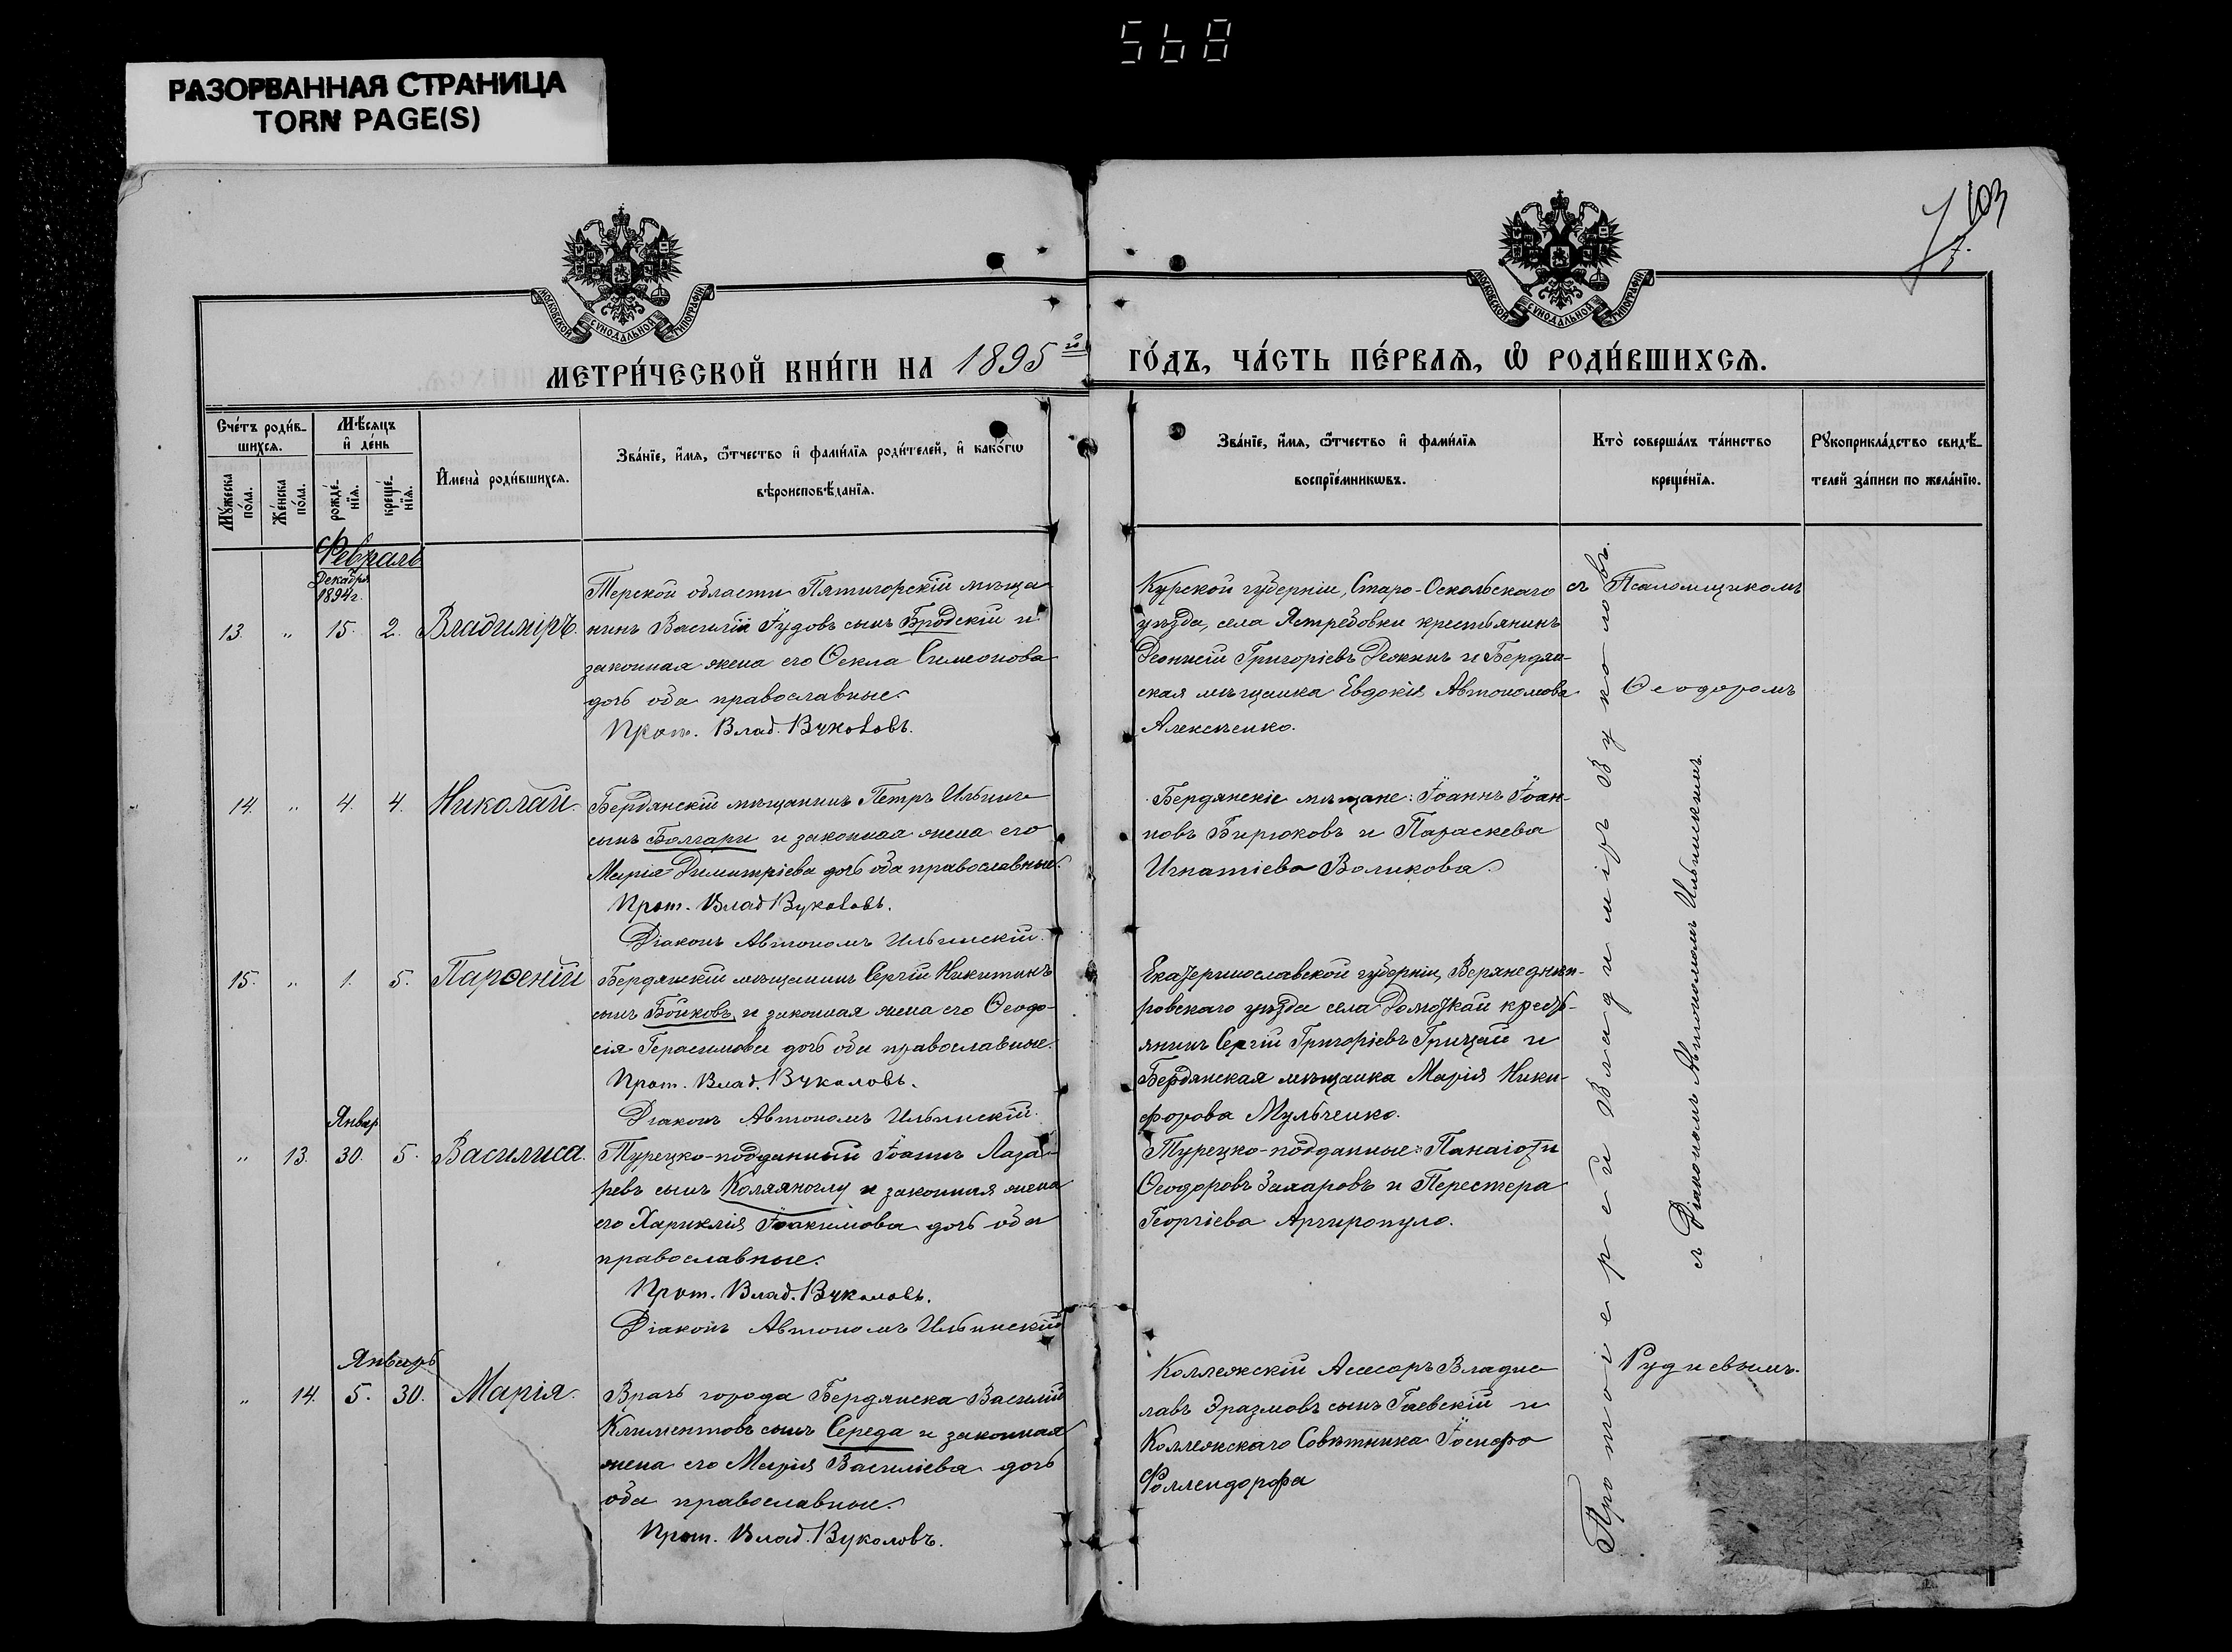 568
РАЗОРВАННАЯ СТРАНИЦА
TORN PAGE(S)
103
МОСКОВСКОЙ СѴНОДАЛЬНОЙ ТИПОГРАФІИ
МОСКОВСКОЙ СѴНОДАЛЬНОЙ ТИПОГРАФІИ
МЕТРИ́ЧЕСКОЙ КНИ́ГИ НА 1895й ГО́ДЪ, ЧА́СТЬ ПЕ́РВАѦ, Ѡ҆ РОДИ́ВШИХСѦ.
Счетъ роди́в-
шихсѧ.
Мѣ́сѧцъ
и҆ де́нь
Мꙋ́жеска
по́ла.
Же́нска
по́ла.
рожде́-
нїѧ.
креще́-
нїѧ.
И҆мена̀ роди́вшихсѧ.
Зва́нїе, и҆́мѧ, ѻ҆́тчество и҆ фами́лїѧ роди́телей, и҆ како́гѡ
вѣроисповѣ́данїѧ.
Зва́нїе, и҆́мѧ, ѻ҆́тчество и҆ фами́лїѧ
воспрїе́мникѡвъ.
Кто̀ соверша́лъ та́инство
креще́нїѧ.
Рꙋкоприкла́дство свидѣ́-
телей за́писи по жела́нїю.
Февраль
Декабря
1894г.
13. „ 15. 2. Владиміръ.
Терской области Пятигорскій мѣща
нинъ Василій Іудовъ сынъ Бродскій и
законная жена его Ѳекла Симеонова
дочь оба православные.
Прот. Влад. Вуколовъ.
Курской губерніи, Старо-Оскольскаго
уѣзда, села Ястребовки крестьянинъ
Григоріевъ и Бердян-
ская мѣщанка Евдокія Автономова
Алексѣенко.
съ Псаломщикомъ
Ѳеодоромъ
14. „ 4. 4. Николай.
Бердянскій мѣщанинъ Петръ Ильинъ
сынъ Болгари и законная жена его
Марія Димитріева дочь оба православные.
Прот. Влад Вуколовъ.
Діаконъ Автономъ Ильинскій.
Бердянскіе мѣщане: Іоаннъ Іоан-
новъ Бирюковъ и Параскева
Игнатіева Воликова.
15. „ 1. 5. Парѳеній
Бердянскій мѣщанинъ Сергій Никитинъ
сынъ Бойковъ, и законная жена его Ѳеодо-
сія Герасимова дочь оба православные.
Прот. Влад. Вуколовъ.
Діаконъ Автономъ Ильинскій.
Екатеринославской губерніи, Верхнеднѣп-
ровскаго уѣзда села Домоткани кресть-
янинъ Сергій Григоріевъ Грицай и
Бердянская мѣщанка Марія Ники-
форова Мульченко.
Январ
„ 13. 30. 5. Василиса.
Турецко-подданный Іоаннъ Лаза-
ревъ сынъ Коляяноглу и законная жена
его Хариклія Іоакимова дочь оба
православные.
Прот. Влад. Вуколовъ.
Діаконъ Автономъ Ильинскій
Турецко-подданные: Панаіоти
Ѳеодоровъ Захаровъ и Перестера
Георгіева Аргиропуло.
Январь
„ 14. 5. 30. Марія.
Врачъ города Бердянска Василій
Климентовъ сынъ Середа и законная
жена его Марія Василіева дочь
оба православные.
Прот. Влад. Вуколовъ.
Коллежскій Асесоръ Владис
лавъ Эразмовъ сынъ Гаевскій и
Коллежскаго Совѣтника Іосифа
Фоллендорфа
Протоіерей Владиміръ Вуколовъ.
съ Діакономъ Автономомъ Ильинскимъ.
Рудневымъ.